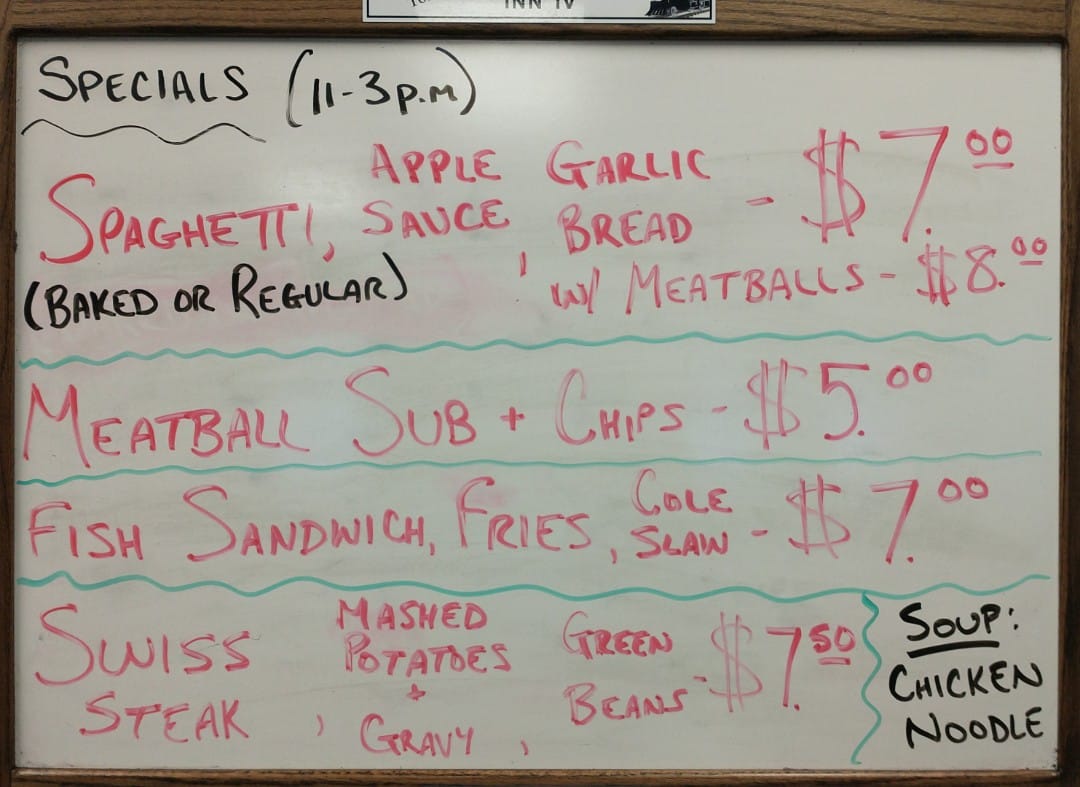 INN IV
SPECIALS (11-3 p.m)
SPAGHETTI, APPLE SAUCE, GARLIC BREAD - $7.00
(BAKED OR REGULAR) w/ MEATBALLS - $8.00
MEATBALL SUB + CHIPS - $5.00
FISH SANDWICH, FRIES, COLE SLAW - $7.00
SWISS STEAK, MASHED POTATOES + GRAVY, GREEN BEANS - $7.50
SOUP:
CHICKEN
NOODLE